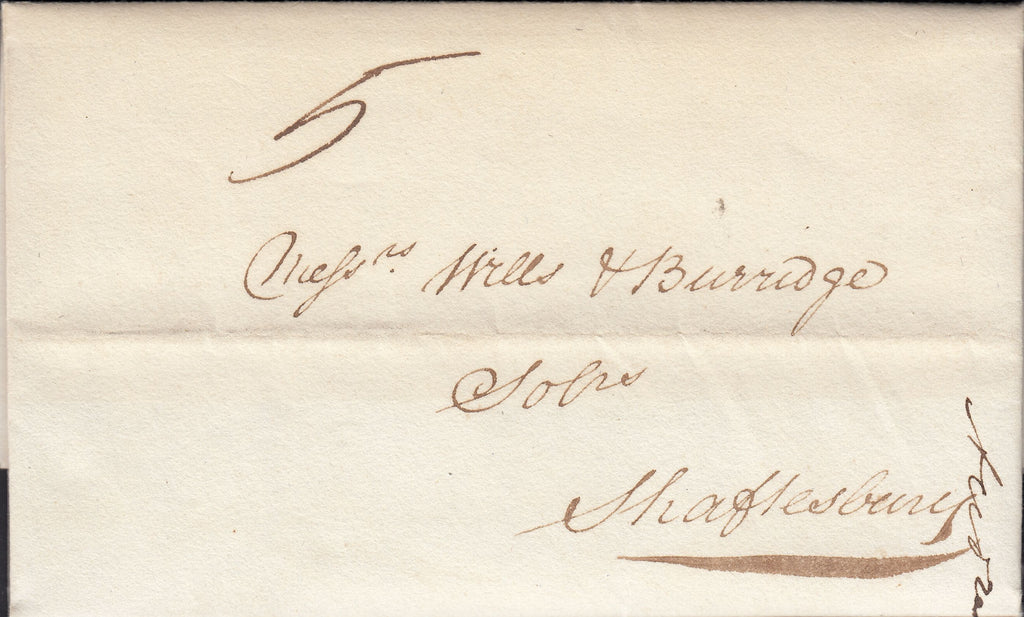 5
Messrs. Wills & Burridge
Solrs
Shaftesbury